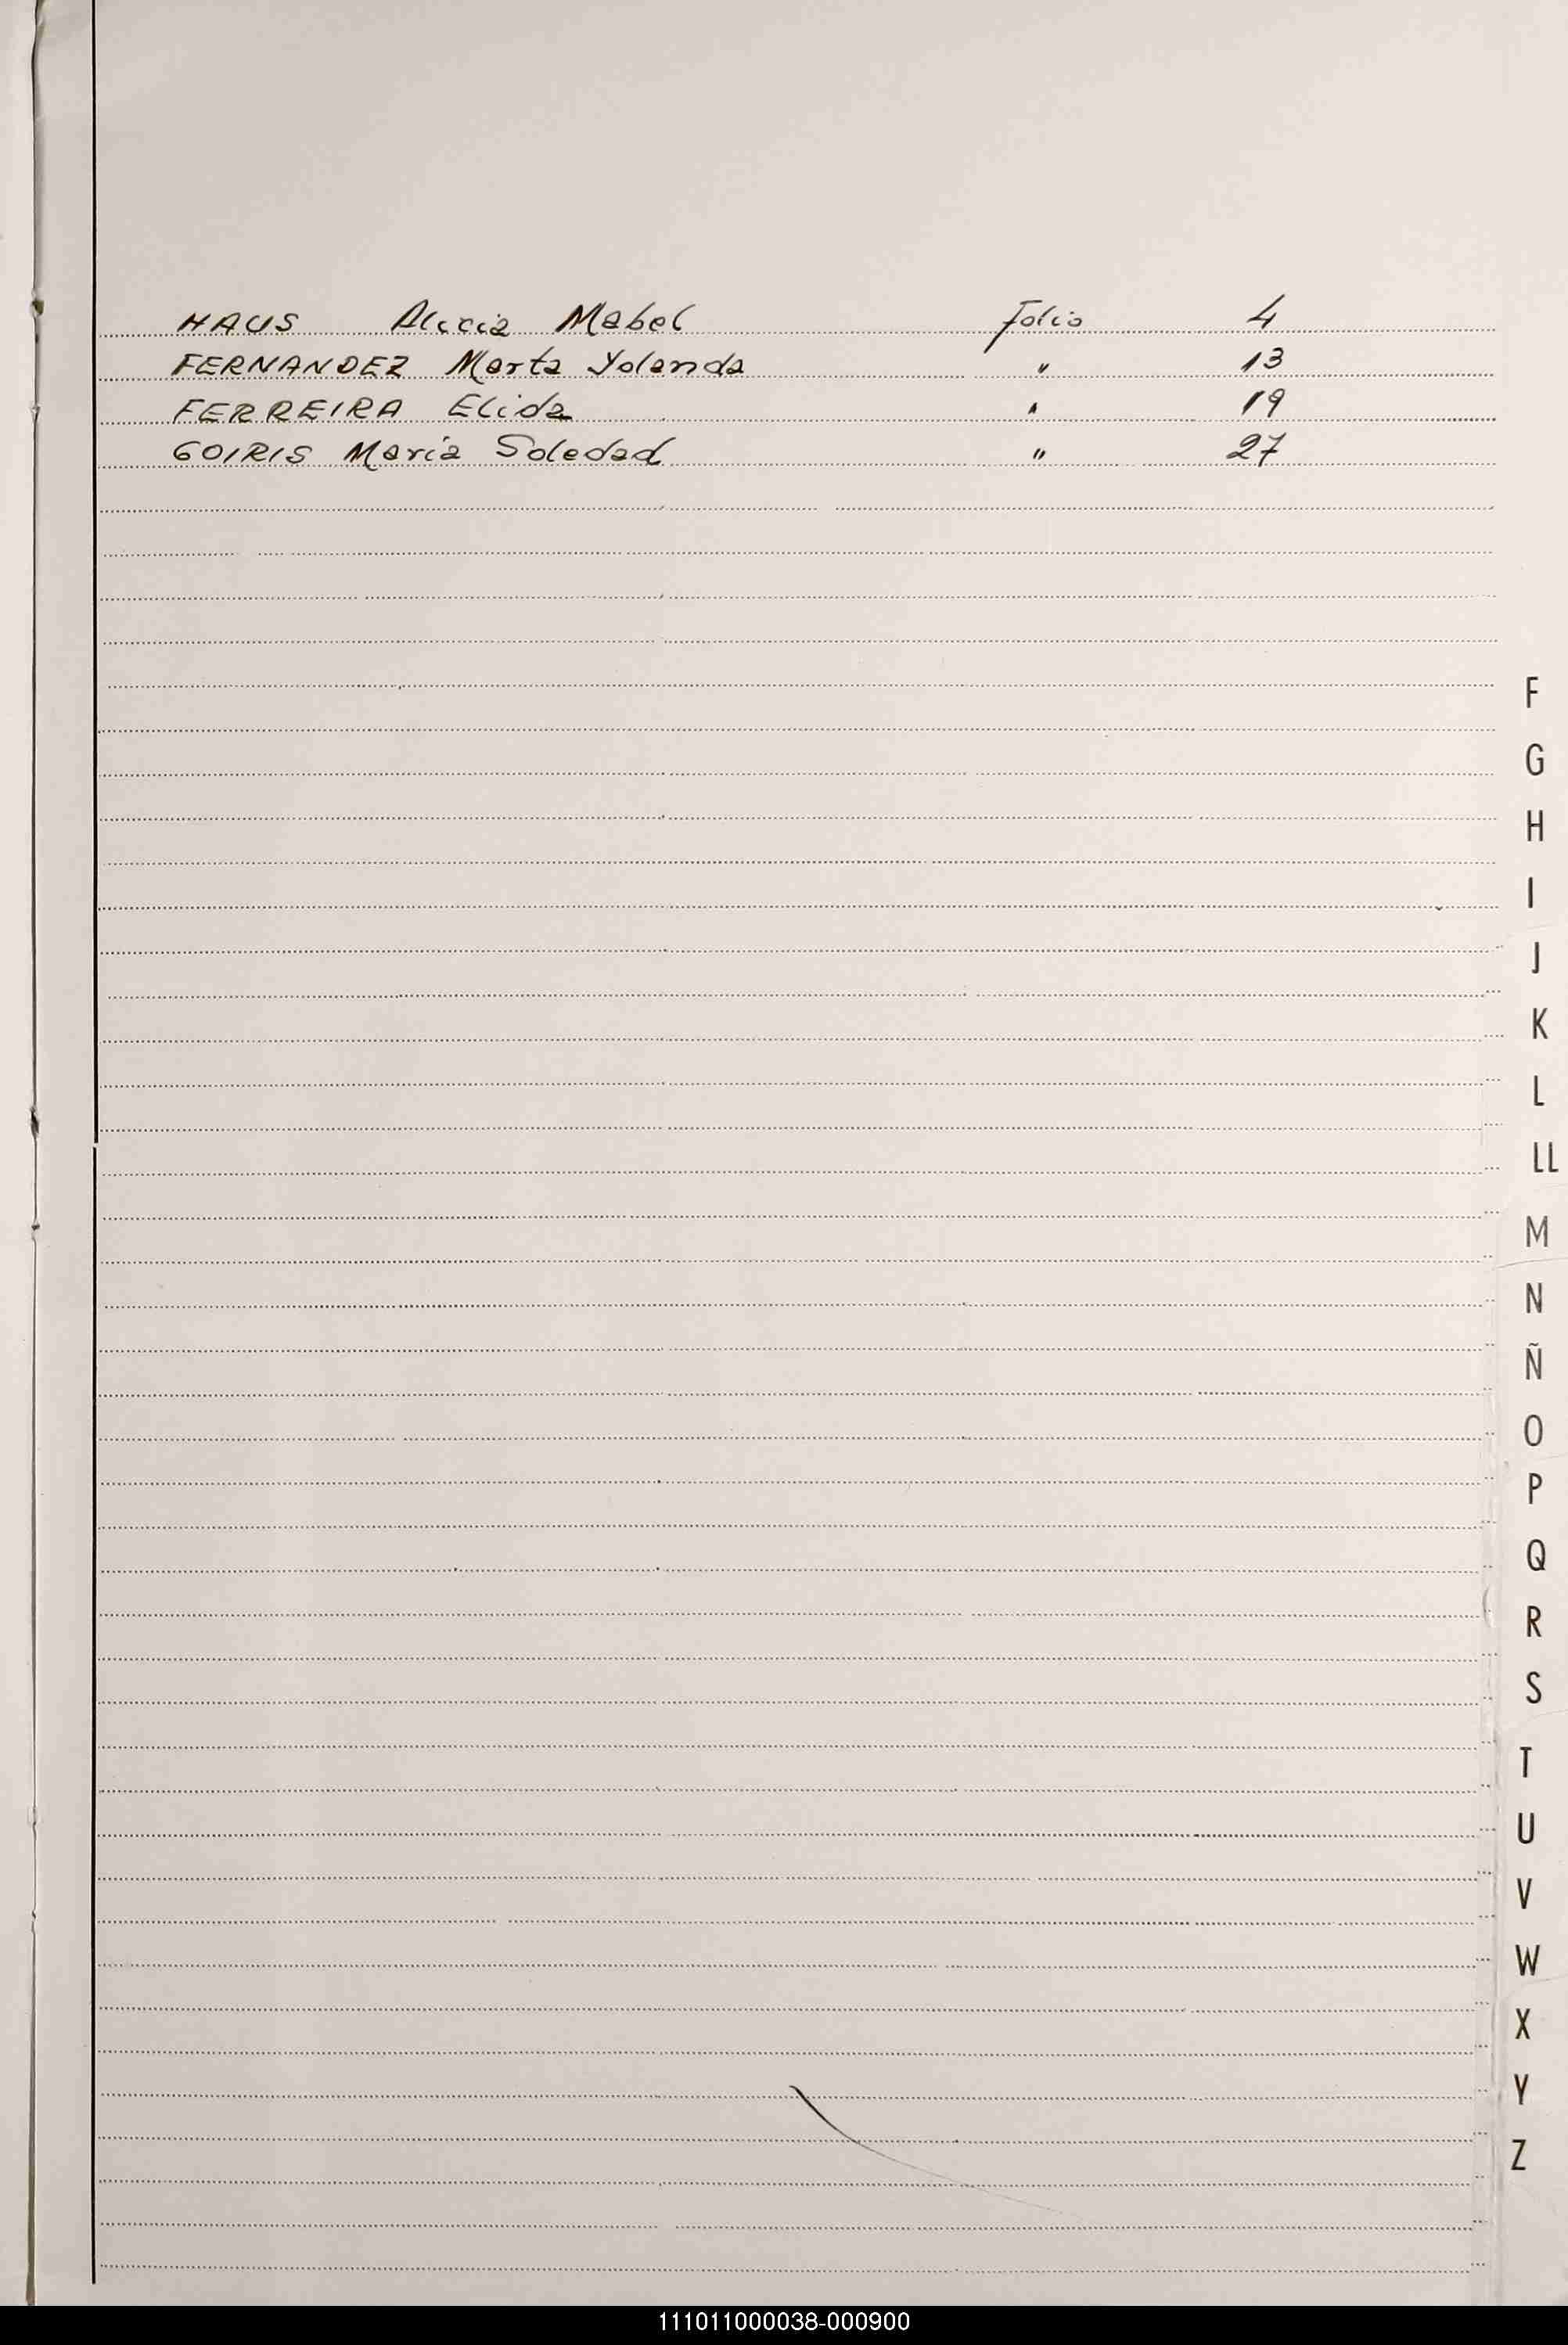 HAUS Alicia Mabel Folio 4
FERNANDEZ Marta Yolanda " 13
FERREIRA Elida " 19
GOIRIS María Soledad " 27
F
G
H
I
J
K
L
LL
M
N
Ñ
O
P
Q
R
S
T
U
V
W
X
Y
Z
111011000038-000900